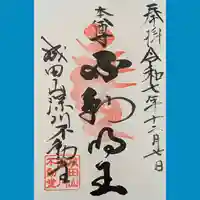 奉拝 令和七年十二月七日
本尊
不動明王
成田山深川不動堂
成田山
不動堂